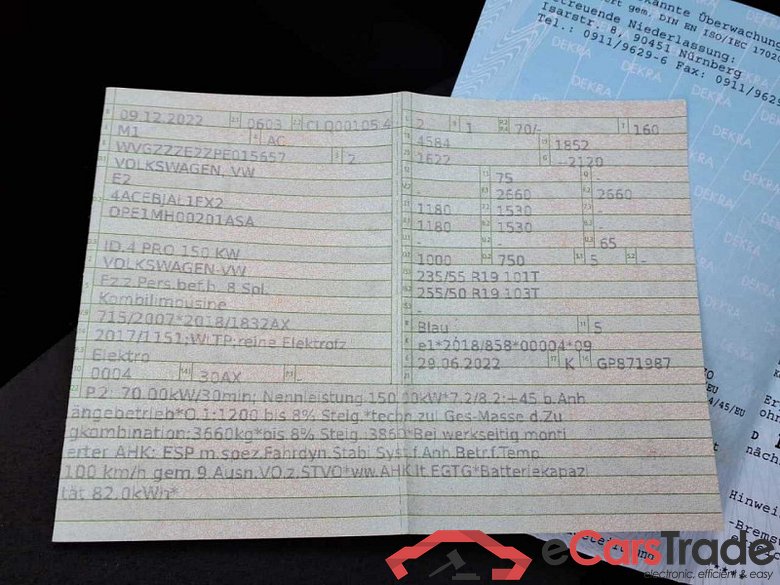 kannte Überwachun
ert gem. DIN EN ISO/IEC 1702
etreuende Niederlassung:
Isarstr. 8, 90451 Nürnberg
Tel.: 0911/9629-6 Fax: 0911/9629
DEKRA
09.12.2022 0603 CLQ00105 4
M1 AC
WVGZZZE2ZPE015657 2
VOLKSWAGEN, VW
E2
4ACEBJAL1FX2
OPE1MH00201ASA
ID.4 PRO 150 KW
VOLKSWAGEN-VW
Fz.z.Pers.bef.b. 8 Spl.
Kombilimousine
715/2007*2018/1832AX
2017/1151;WLTP;reine Elektrofz
Elektro
0004 30AX -
2 1 70/- 160
4584 1852
1622 -2120
- 75 -
- 2660 2660
1180 1530 -
1180 1530 -
- - 65
1000 750 5 -
235/55 R19 101T
255/50 R19 103T
-
Blau 5
e1*2018/858*00004*09
29.06.2022 K GP871987
P.2: 70.00kW/30min; Nennleistung.150.00kW*7.2/8.2:+45 b.Anh
ängebetrieb*O.1:1200 bis 8% Steig.*techn.zul.Ges-Masse d.Zu
gkombination:3660kg*bis 8% Steig.:3860*Bei werkseitig monti
erter AHK: ESP m.spez.Fahrdyn.Stabi.Syst.f.Anh.Betr.f.Temp
100 km/h gem.9.Ausn.VO.z.STVO*ww.AHK lt.EGTG*Batteriekapazi
tät 82.0kWh*
4/45/EU
nächs
Hinwei
-Bremsw
eCarsTrade
electronic, efficient & easy